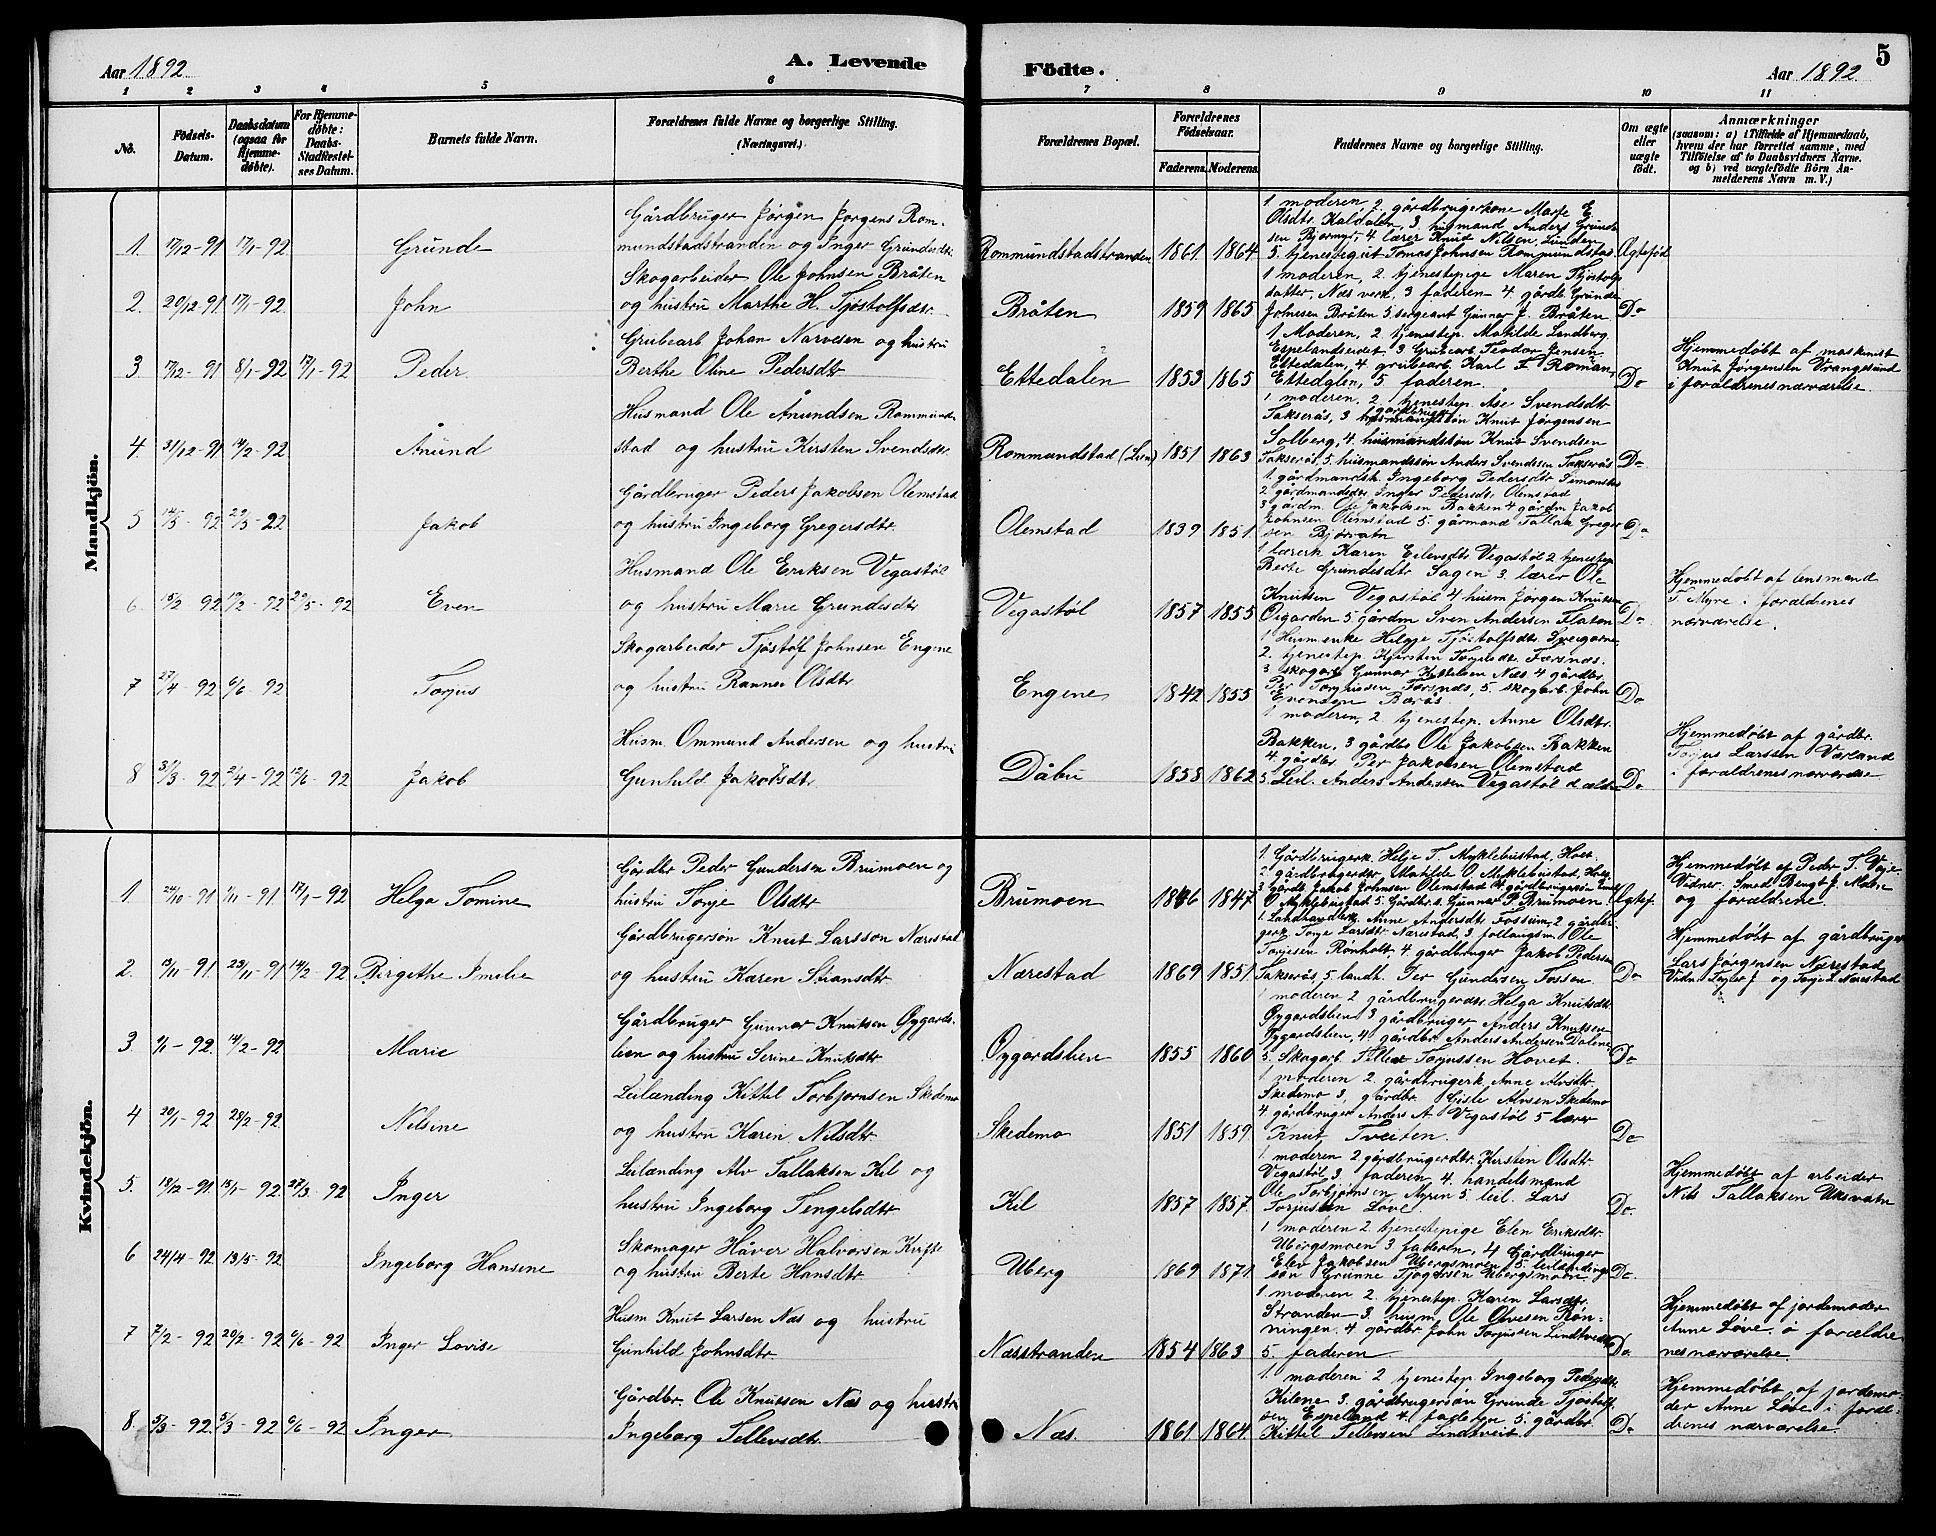 Aar 1892. A. Levende
Födte. Aar 1892. 5
1 2 3 4 5 6
7 8 9 10 11
No. Födsels-Datum. Daabsdatum (ogsaa for Hjemmedøbte). For Hjemmedøbte: Daabs-Stadfæstelses Datum. Barnets fulde Navn. Forældrenes fulde Navne og borgerlige Stilling. (Næringsvei.)
Forældrenes Bopæl. Forældrenes Födselsaar. Faderens. Moderens. Faddernes Navne og borgerlige Stilling. Om ægte eller uægte født. Anmærkninger (saasom: a) i Tilfælde af Hjemmedaab, hvem der har forrettet samme, med Tilföielse af to Daabsvidners Navne. og b) ved uægtefödte Börn Anmelderens Navn m. V.)
Mandkjön.
1. 17/12-91 17/1-92 Grunde
Gårdbruger Jørgen Jørgens Rom-
mundstadstranden og Inger Grundesdtr.
Rommundstadstranden 1861 1864 Ægtefød
1 moderen, 2 gårdbrugerkone Marje E
Olsdtr. Kaldalen, 3 husmand Anders Grunde
sen Bjørmyr, 4 lærer Knud Nilsen Lunden
5. tjenestegut Tomas Johnsen Rommundstad
2. 20/12-91 17/1-92 John
Skogarbeider Ole Johnsen Bråten
og hustru Marthe H. Tjøstolfsdtr.
Bråten 1859 1865 Do
1 moderen, 2 tjenestepige Maren Tjøstolfs
datter, Næs verk, 3 faderen 4 gårdb. Grunde
Johnsen Bråten 5 sergeant Gunner J. Bråten
3. 17/12-91 8/1-92 17/1-92 Peder
Grubearb Johan Narvesen og hustru
Berthe Oline Pedersdtr
Ettedalen 1853 1865 Do
1 Moderen, 2 tjenestep. Matilde Landberg
Espelandseidet 3 Grubearb. Teodor Jensen
Ettedalen, 4 grubearb. Karl F Roman,
Ettedalen, 5 faderen.
Hjemmedøbt af maskinist
Knut Jørgensen Vrangesund
i forældrenes nærværelse
4. 31/12-91 14/2-92 Ånund
Husmand Ole Ånundsen Rommund
stad og hustru Kirsten Svendsdtr.
Rommundstad (Lien) 1851 1863 Do
1 moderen, 2 tjenestep. Åse Svendsdtr
Takserås, 3 gårdbruger Knut Jørgensen
Solberg, 4. husmandssøn Knut Svendsen
Takserås, 5. husmandssøn Anders Svendsen Takserås
5 14/3-92 29/5-92 Jakob
Gårdbruger Peders Jakobsen Olemstad
og hustru Ingeborg Gregersdtr.
Olemstad 1839 1851 Do
1. gårdmandsk. Ingeborg Pedersdtr Simonstad
2 gårdmandsdtr Inger Pedersdtr Olemstad
3 gårdm. Ole Jakobsen Bakken 4 gårdm Jakob
Johnsen Olemstad 5. gårmand Tallak Greger
sen Bjørvatn
6. 15/2 92 17/2-92 29/5-92 Even
Husmand Ole Eriksen Vegastøl
og hustru Marie Grundesdtr
Vegastøl 1857 1855 Do
1 lærerk Karen Eilevsdtr Vegastøl 2 tjenestep
Berte Grundesdtr Sagen 3. lærer Ole
Knutsen Vegastøl 4 husm Jørgen Knutsen
Osgarden 5 gårdm Sven Andersen Flaten
Hjemmedøbt af lensmand
T. Myre i forældrenes
nærværelse.
7 27/4-92 6/6-92 Torjus
Skogarbeider Tjøstøf Johnsen Engene
og hustru Rannei Olsdtr
Engene 1842 1855 Do
1 Husmenke Helgje Tjøstolfsdtr. Sveigarne
2. tjenestep. Kjersten Torjusdtr. Færsnæs.
3. skogarb Gunnar Kittelsen Næs 4 gårdbr.
Per Torjussen Færsnæs, 5. skogarb. John
Evensen Børås
8 31/3-92 2/4-92 12/6-92 Jakob
Husm. Ommund Andersen og hustru
Gunhild Jakobsdtr.
Dåbu 1858 1862 Do
1. moderen, 2 tjenestep. Anne Olsdtr.
Bakken, 3 gårdbr Ole Jakobsen Bakken
4 gårdbr Per Jakobsen Olemstad
5 Leil. Anders Andersen Vegastøl d. ældre
Hjemmedøbt af gårdbr.
Torjus Larssen Værland
i forældrenes nærværelse
Kvindekjön.
1 24/10-91 1/11-91 17/1-92 Helga Tomine
Gårdbr Peder Gundersen Brumoen og
hustru Torje Olsdtr
Brumoen 1846 1847 Ægtef.
1. Gårdbrugerk. Helje T. Myklebustad, Hovt.
2 gårdbrugerdtr Matilde O Myklebustad, Holt,
3 Gårdb Jakob Johnsen Olemstad 4 gårdbrugersøn
O Myklebustad 5. Gårdbr.s. Gunnar P. Brumoen
Hjemmedøbt af Peder T. Veje
Vidner. Smed Bengt J. Moene
og forældrene.
2. 13/11-91. 23/11-91 14/2-92 Birgithe Emelie
Gårdbrugersøn Knut Larsson Nærestad
og hustru Karen Stiansdtr.
Nærestad 1869 1851 Do
1. Landhandlerk. Anne Andersdtr Fosseim, 2 gårdbr
gerk Torje Larsdtr Nærestad, 3. follaugsm. Ole
Torjusen Rønholt, 4 gårdbruger Jakob Pedersen
Takserås, 5 landh. Per Gundersen Fossen
Hjemmedøbt af gårdbruger
Lars Jørgensen Nærestad
Vidn: Inger J. og Torje L. Nærestad
3 1/1-92. 14/2-92 Marie
Gårdbruger Gunnar Knutsen Øygards-
lien og hustru Serine Knutsdtr.
Øygardsliene 1855 1860 Do
1 moderen 2 gårdbrugerdtr Helga Knutsdtr
Øygardslien 3 gårdbruger Anders Knutsen
Øygardslien, 4 gårdbr Anders Andersen Dalene
5. Skogarb. Tellef Torjussen Hovet.
4 20/1-92 28/2-92 Nilsine
Leilænding Kittel Torbjørnsen Skedemo
og hustru Karin Nilsdtr.
Skedemo 1851 1859 Do
1 moderen 2. gårdbrugerk. Anne Alvsdtr.
Skedemo 3, gårdbr. Gisle Alvsen Skedemo
4 gårdbruger Anders A Vegastøl 5 lærer
Knut Tveiten.
5. 18/12-91. 13/1-92 27/3-92 Inger
Leilænding Alv Tallaksen Kil og
hustru Ingeborg Tengelsdtr
Kil 1857 1857 Do.
1. moderen 2 gårdbrugerdtr. Kirsten Olsdtr
Vegastøl 3. faderen, 4. handelsmand
Ole Torbjørnsen Myren 5. leil. Lars
Torjussen Løve.
Hjemmedøbt af arbeider
Nils Tallaksen Uksvatn
6 24/4-92 13/5-92 Ingeborg Hansine
Skomager Håver Halvorsen Kvifte
og hustru Berte Hansdtr.
Uberg 1869 1871 Do.
1 moderen 2. tjenestepige Elen Eriksdtr.
Ubergsmoen 3 faderen, 4 Gårdbruger
Elev Jakobsen Ubergsmoen, 5. leilændinge
søn Grunne Tjøgersen Ubergsmoen.
7 7/2-92 20/2-92 6/6-92 Inger Lovise
Husm Knut Larsen Næs og hustru
Gunhild Johnsdtr.
Næsstranden 1854 1863 Do.
1 moderen 2. tjenestep. Karen Larsdtr.
Stranden 3. husm Ole Olvesen Røn-
ningen. 4 gårdbr John Torjussen Lindtveit
5. faderen
Hjemmedøbt af jordemoder
Anne Løve. i forældre
nes nærværelse.
8. 5/3-92 5/3-92 6/6-92 Inger
Gårdbr. Ole Knutssen Næs og hustru
Ingeborg Tellevsdtr.
Næs. 1861 1864 Do
1. moderen 2 tjenestep Ingeborg Pedersdtr.
Kilene 3. gårdbrugersøn Grunde Tjøstolf
sen Espeland 4 faderen 5. gårdbr.
Kittil Tellevsen Lindtveit
Hjemmedøbt af jordemo-
der Anne Løve i foræl-
drenes nærværelse.